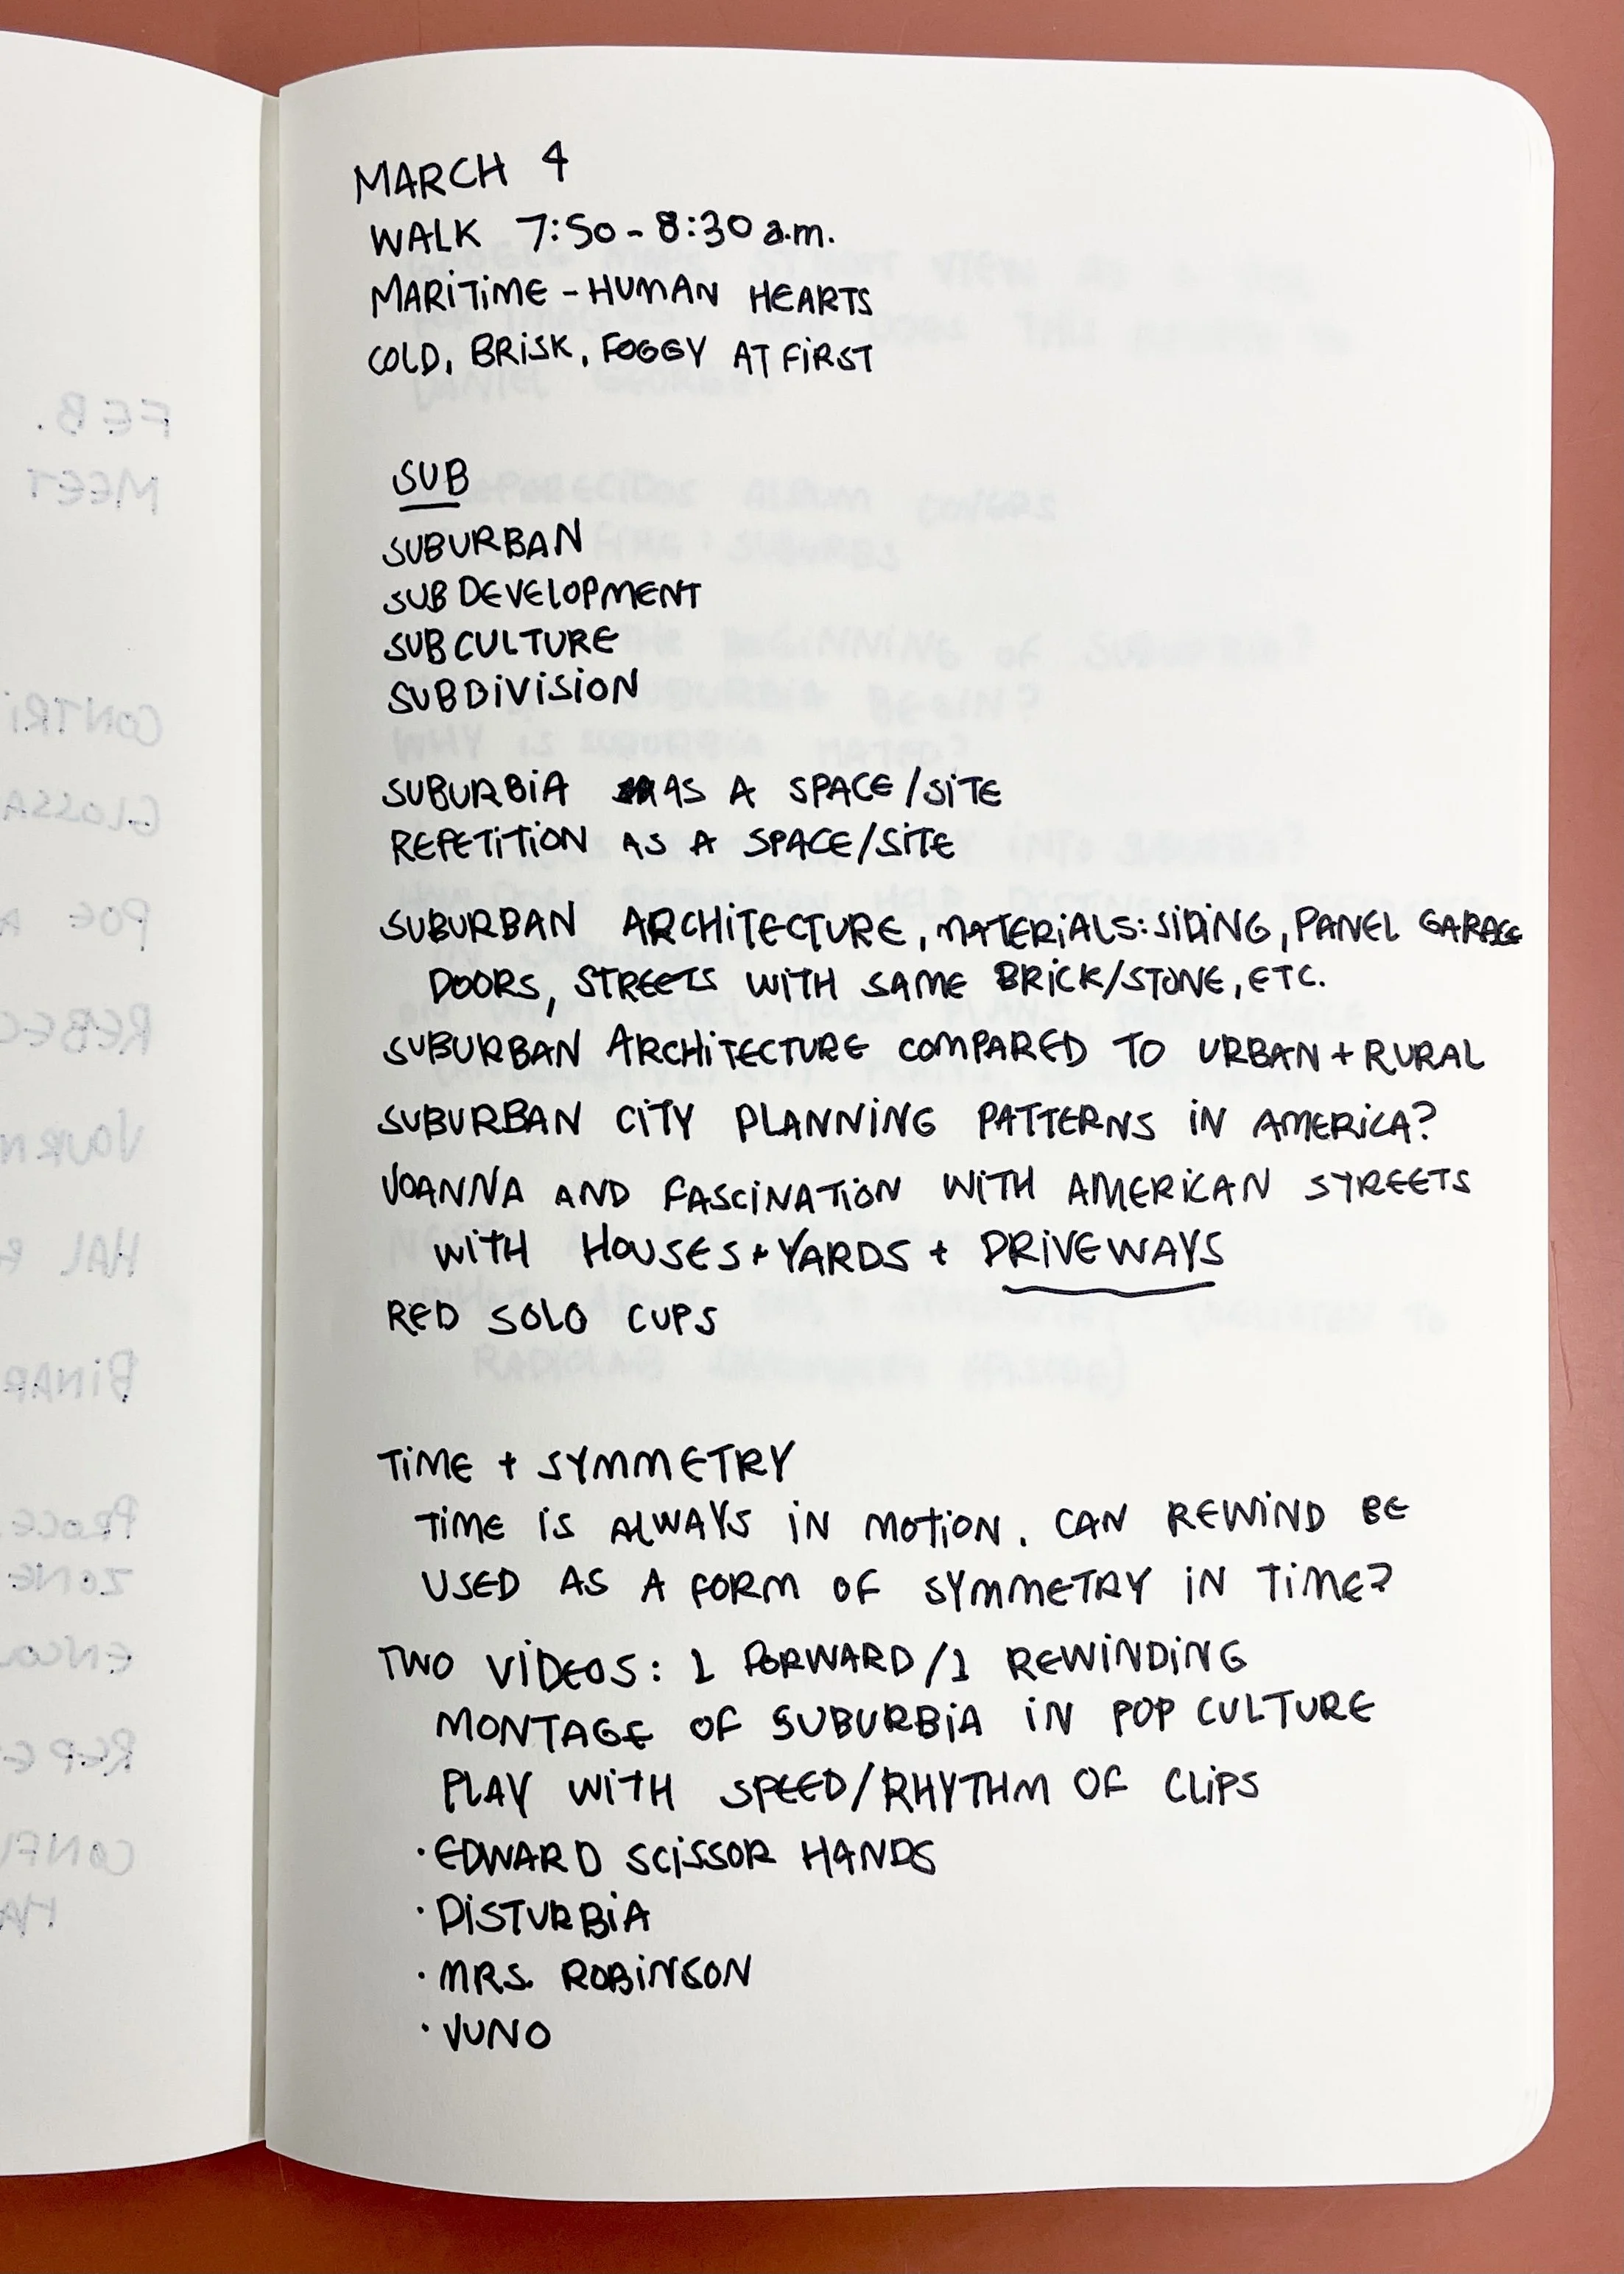 MARCH 4
WALK 7:50 - 8:30 a.m.
MARITIME - HUMAN HEARTS
COLD, BRISK, FOGGY AT FIRST
SUB
SUBURBAN
SUB DEVELOPMENT
SUB CULTURE
SUBDIVISION
SUBURBIA AS A SPACE/SITE
REPETITION AS A SPACE/SITE
SUBURBAN ARCHITECTURE, MATERIALS: SIDING, PANEL GARAGE
DOORS, STREETS WITH SAME BRICK/STONE, ETC.
SUBURBAN ARCHITECTURE COMPARED TO URBAN + RURAL
SUBURBAN CITY PLANNING PATTERNS IN AMERICA?
JOANNA AND FASCINATION WITH AMERICAN STREETS
WITH HOUSES + YARDS + DRIVEWAYS
RED SOLO CUPS
TIME + SYMMETRY
TIME IS ALWAYS IN MOTION. CAN REWIND BE
USED AS A FORM OF SYMMETRY IN TIME?
TWO VIDEOS: 1 FORWARD/1 REWINDING
MONTAGE OF SUBURBIA IN POP CULTURE
PLAY WITH SPEED/RHYTHM OF CLIPS
· EDWARD SCISSOR HANDS
· DISTURBIA
· MRS. ROBINSON
· JUNO